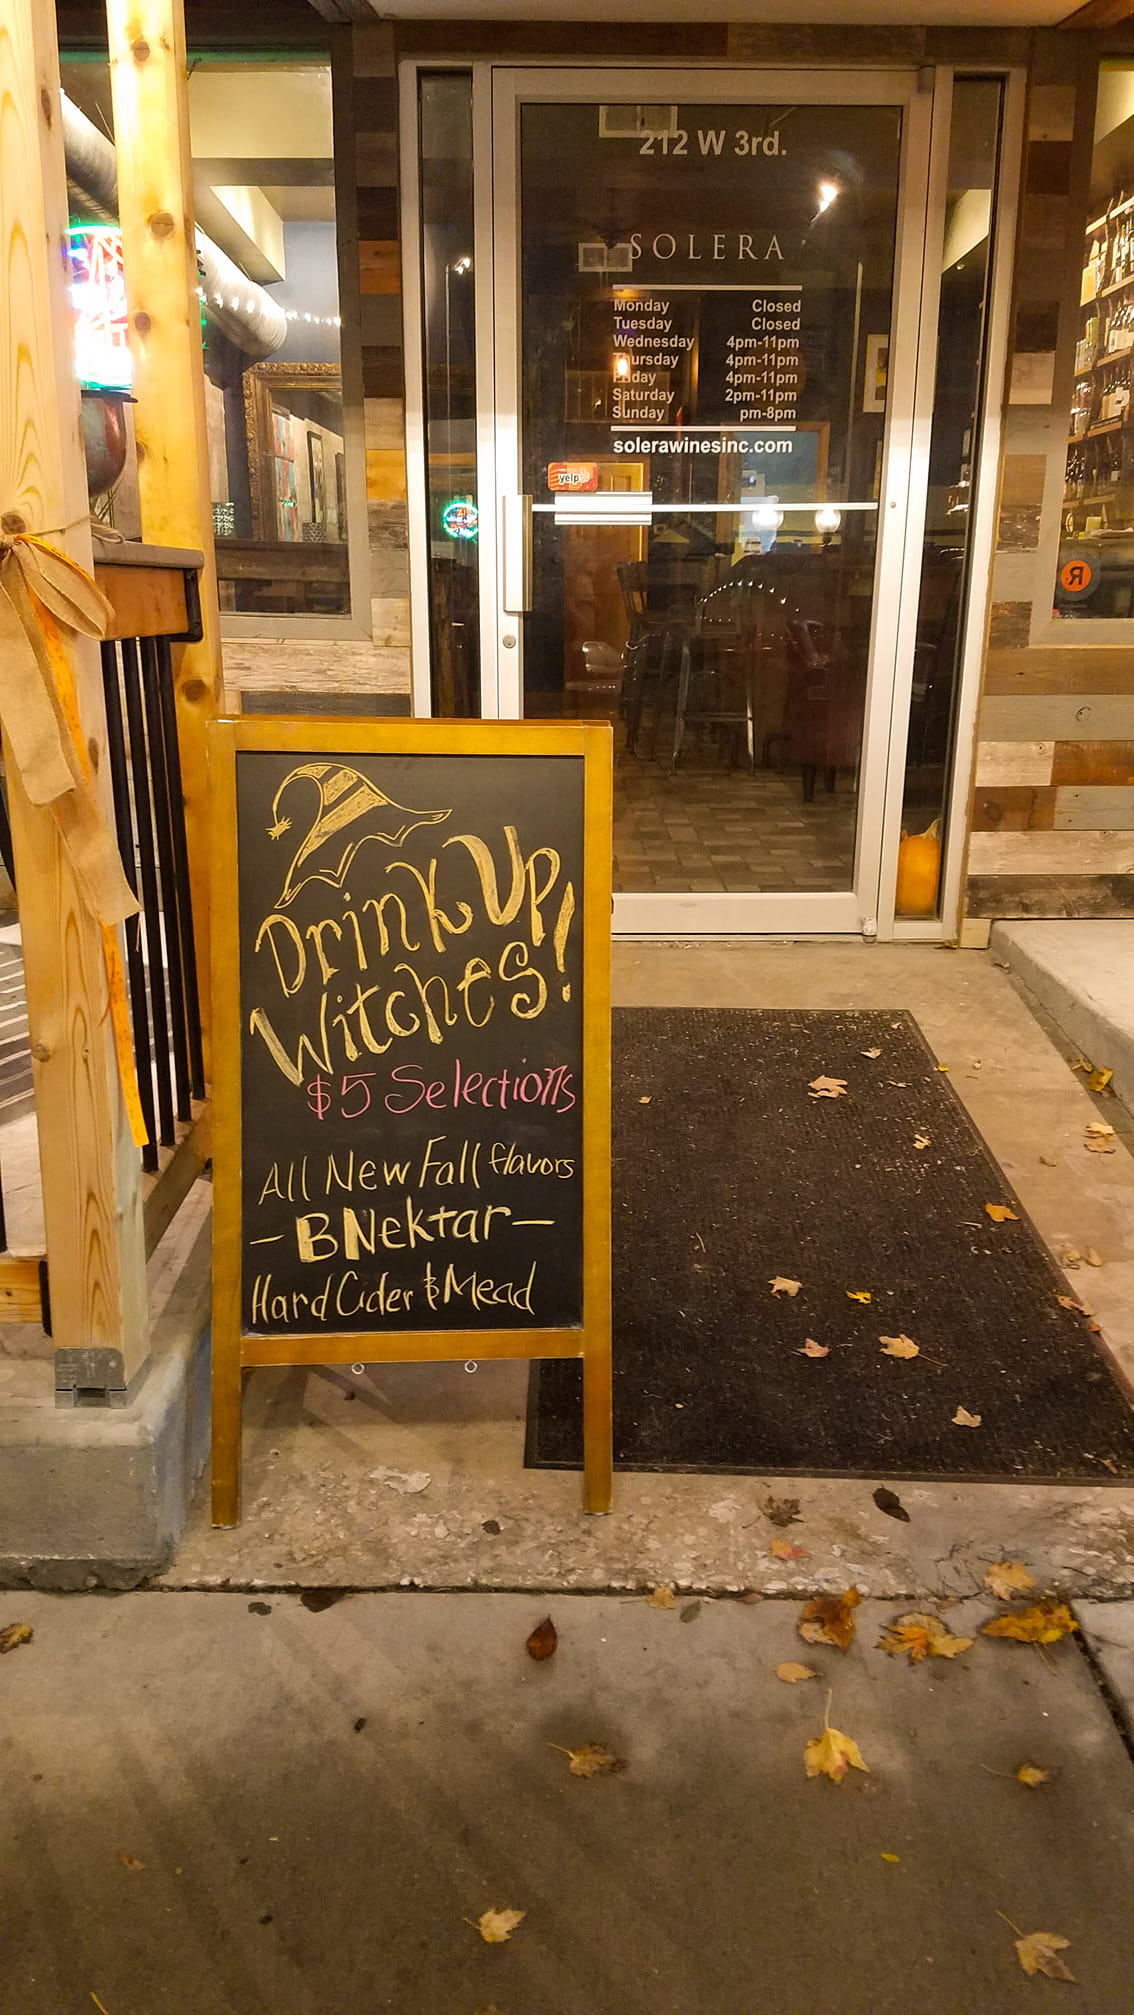 212 W 3rd.
SOLERA
Monday Closed
Tuesday Closed
Wednesday 4pm-11pm
Thursday 4pm-11pm
Friday 4pm-11pm
Saturday 2pm-11pm
Sunday pm-8pm
solerawinesinc.com
yelp
R
Drink Up
Witches!
$5 Selections
All New Fall flavors
- B Nektar -
Hard Cider & Mead